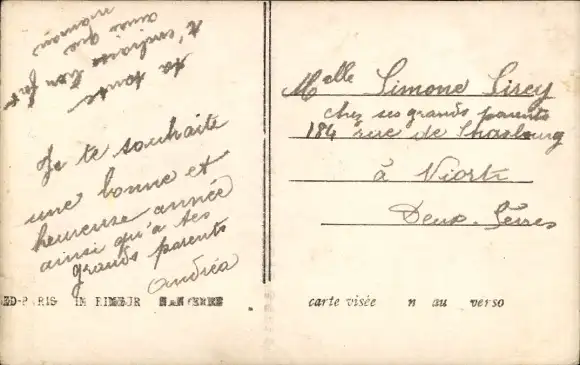 Je te souhaite
une bonne et
heureuse année
ainsi qu'a tes
grands parents
Andréa
ta tante
t'embrasse bien fort
ainsi que
maman
Melle Simone Sirey
chez ses grands parents
184 rue de Strasbourg
à Niort
Deux-Sèvres
ED-PARIS
carte visée n au verso